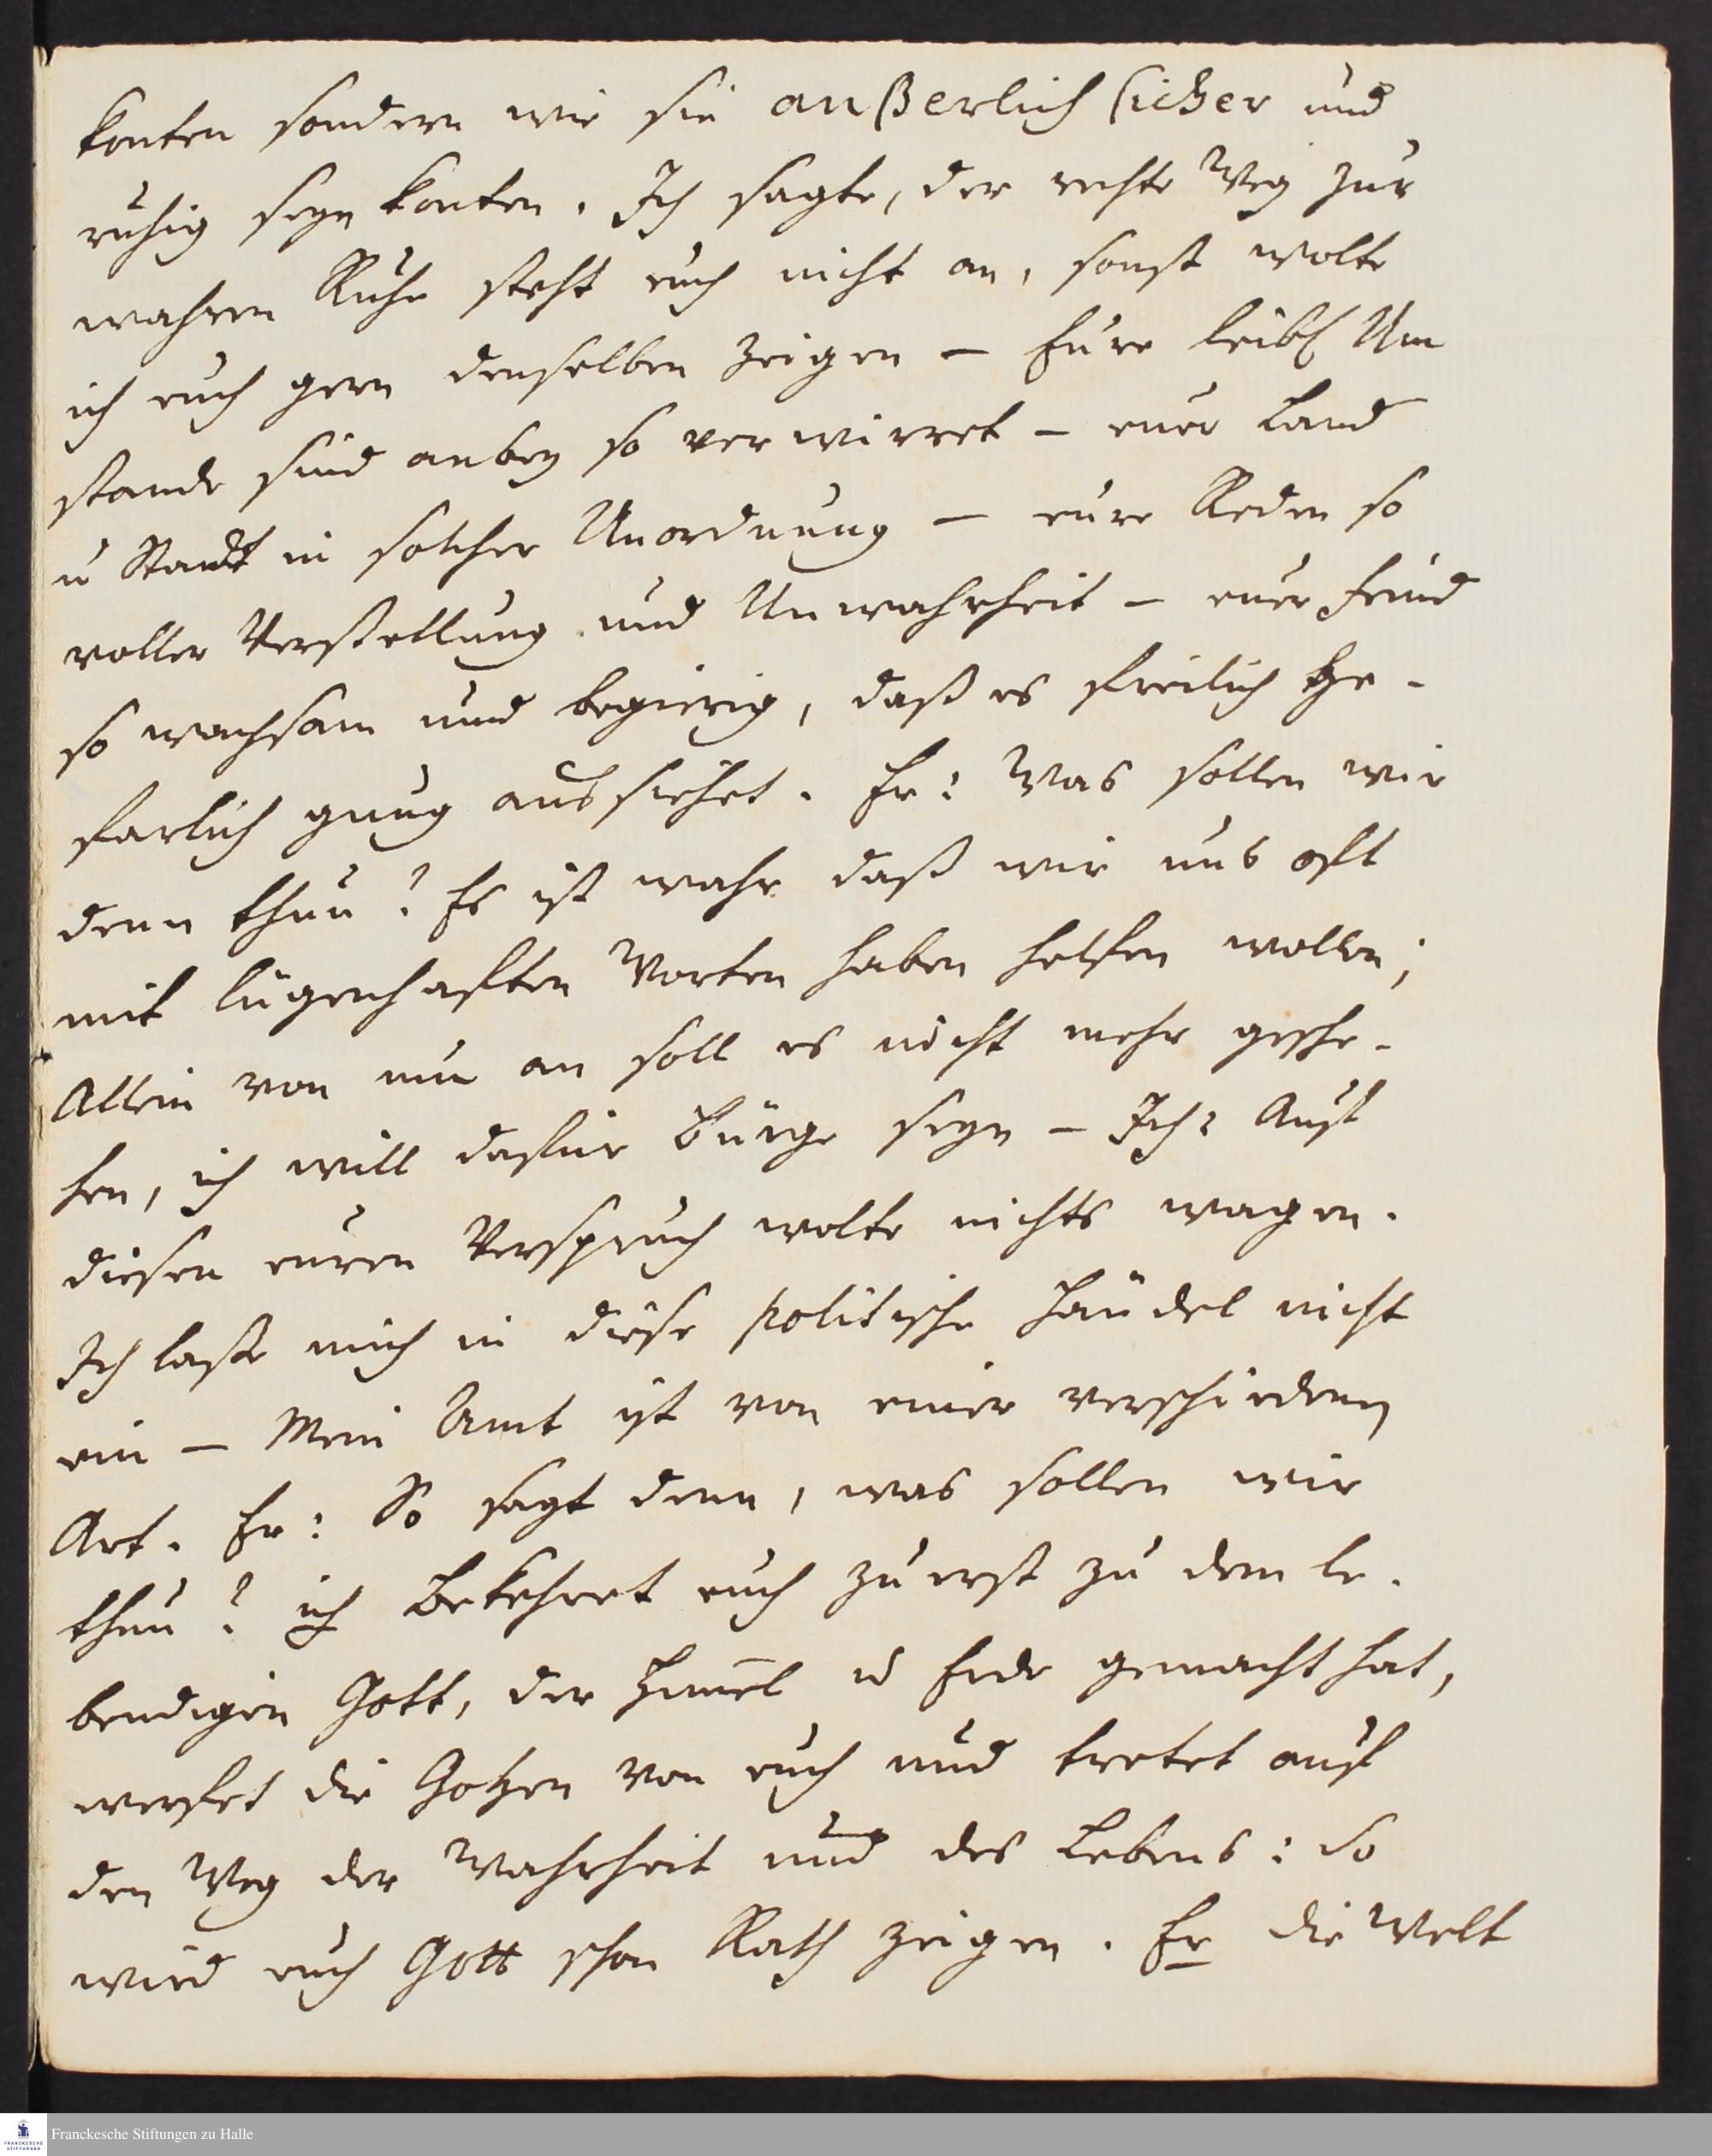 konten sondern wie sie außerlich sicher und
ruhig seyn konten. Ich sagte, der rechte Weg zur
wahren Ruhe steht euch nicht an, sonst wolte
ich euch gern denselben zeigen – Eure leibl Um
stande sind anbey so verwirret – euer Land
u Stadt in solcher Unordnung – eure Reden so
voller Verstellung und Unwahrheit – euer Feind
so wachsam und begierig, daß es freilich Ge-
farlich gnug aussiehet. Er: Was sollen wir
denn thun? Es ist wahr daß wir uns oft
mit lügenhaften Worten haben helfen wollen;
Allein von nun an soll es nicht mehr gesche-
hen, ich will dafür Bürge seyn – Ich: Auf
diesen euren Verspruch wolte nichts wagen.
Ich laße mich in diese politische Händel nicht
ein – Mein Amt ist von einer verschiedenen
Art. Er: So sagt denn, was sollen wir
thun? ich Bekehret euch zuerst zu dem le-
bendigen Gott, der Himel u Erde gemacht hat,
werfet die Gotzen von euch und tretet auf
den Weg der Wahrheit und des Lebens: So
wird euch Gott schon Rath zeigen. Er die Welt
Franckesche Stiftungen zu Halle